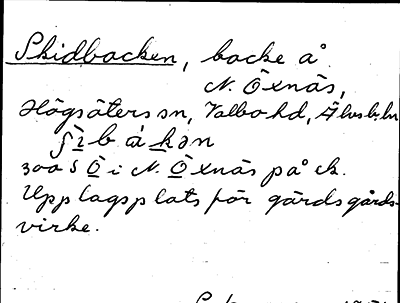 Skidbacken, backe å
N. Öxnäs,
Högsäters sn, Valbo hd, Älvsb. ln
ʃi̠bák̠ən
300 S Ö i N. Öxnäs på ek.
Upplagsplats för gärdsgårds-
virke.